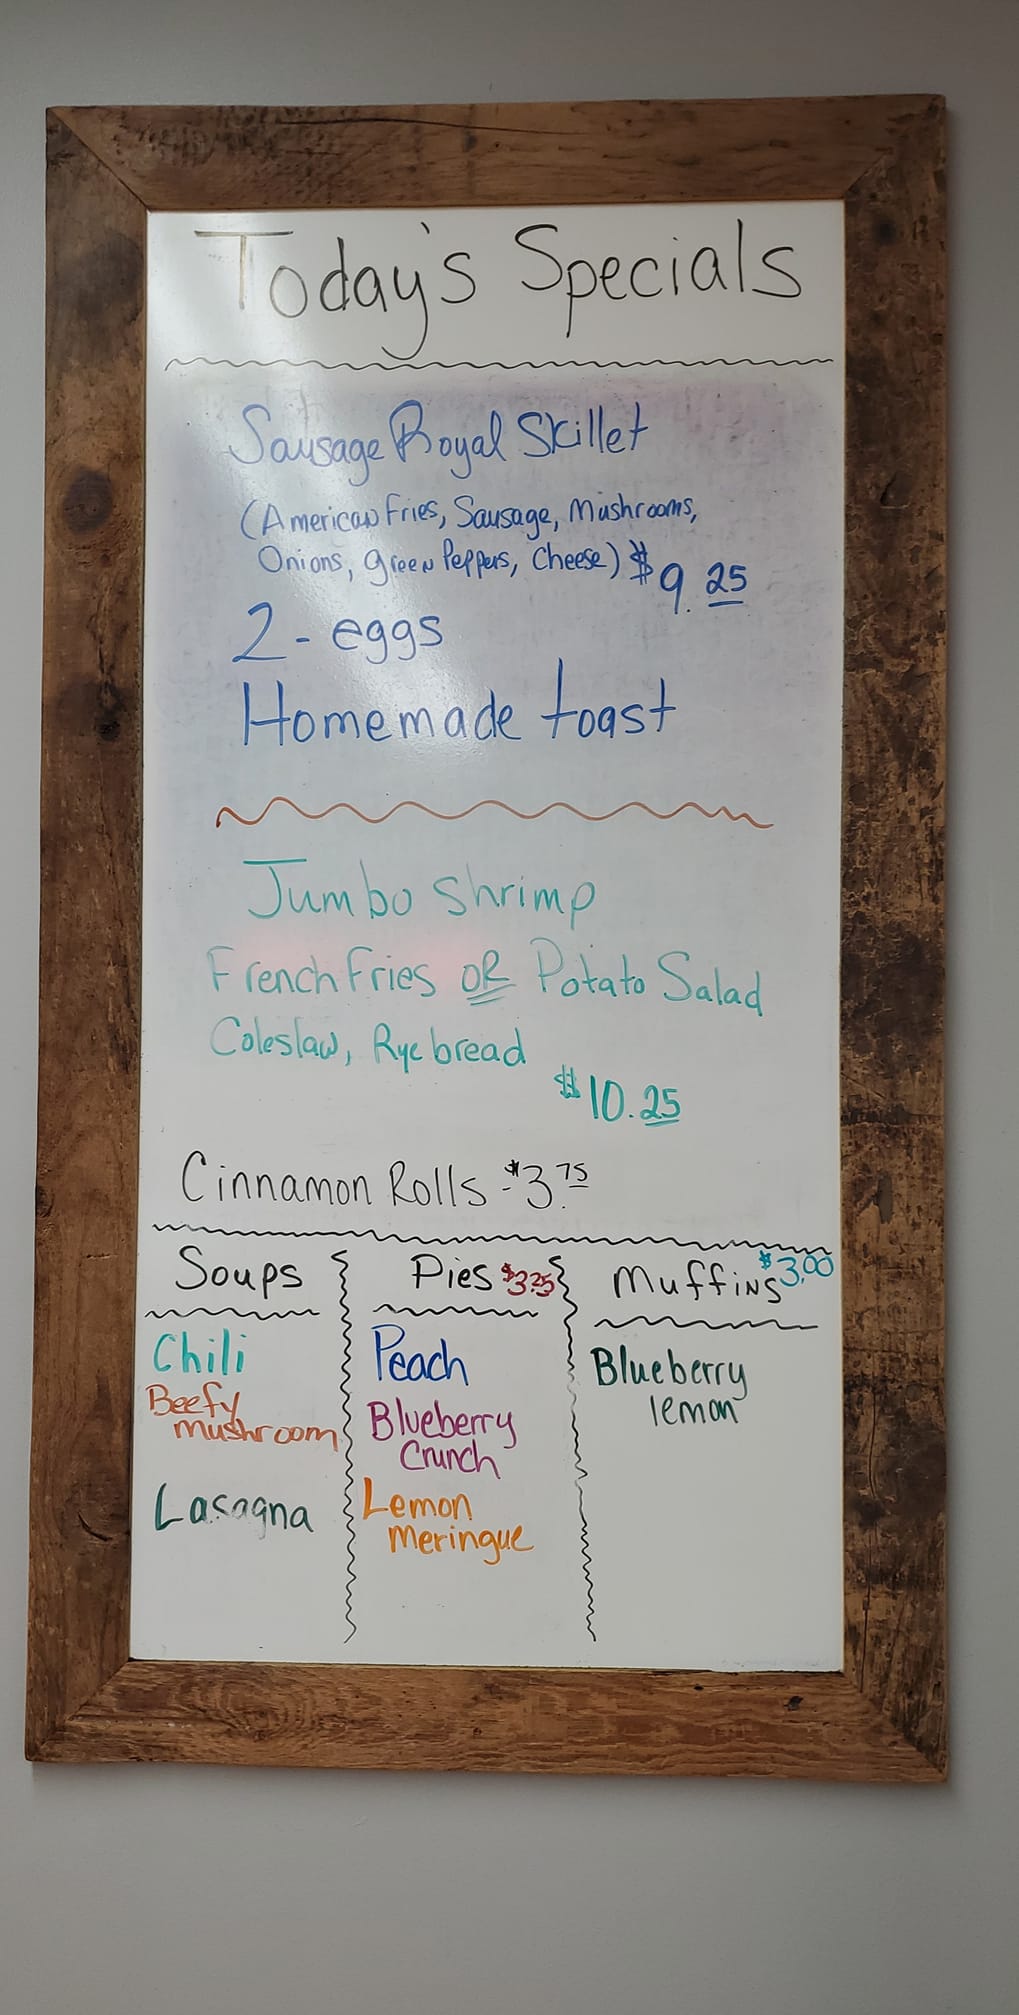 Today's Specials
Sausage Royal Skillet
(American Fries, Sausage, Mushrooms,
Onions, Green Peppers, Cheese) $9.25
2 - eggs
Homemade toast
Jumbo Shrimp
French Fries OR Potato Salad
Coleslaw, Rye bread
$10.25
Cinnamon Rolls - $3.75
Soups
Chili
Beefy
mushroom
Lasagna
Pies $3.25
Peach
Blueberry
Crunch
Lemon
Meringue
Muffins $3.00
Blueberry
lemon